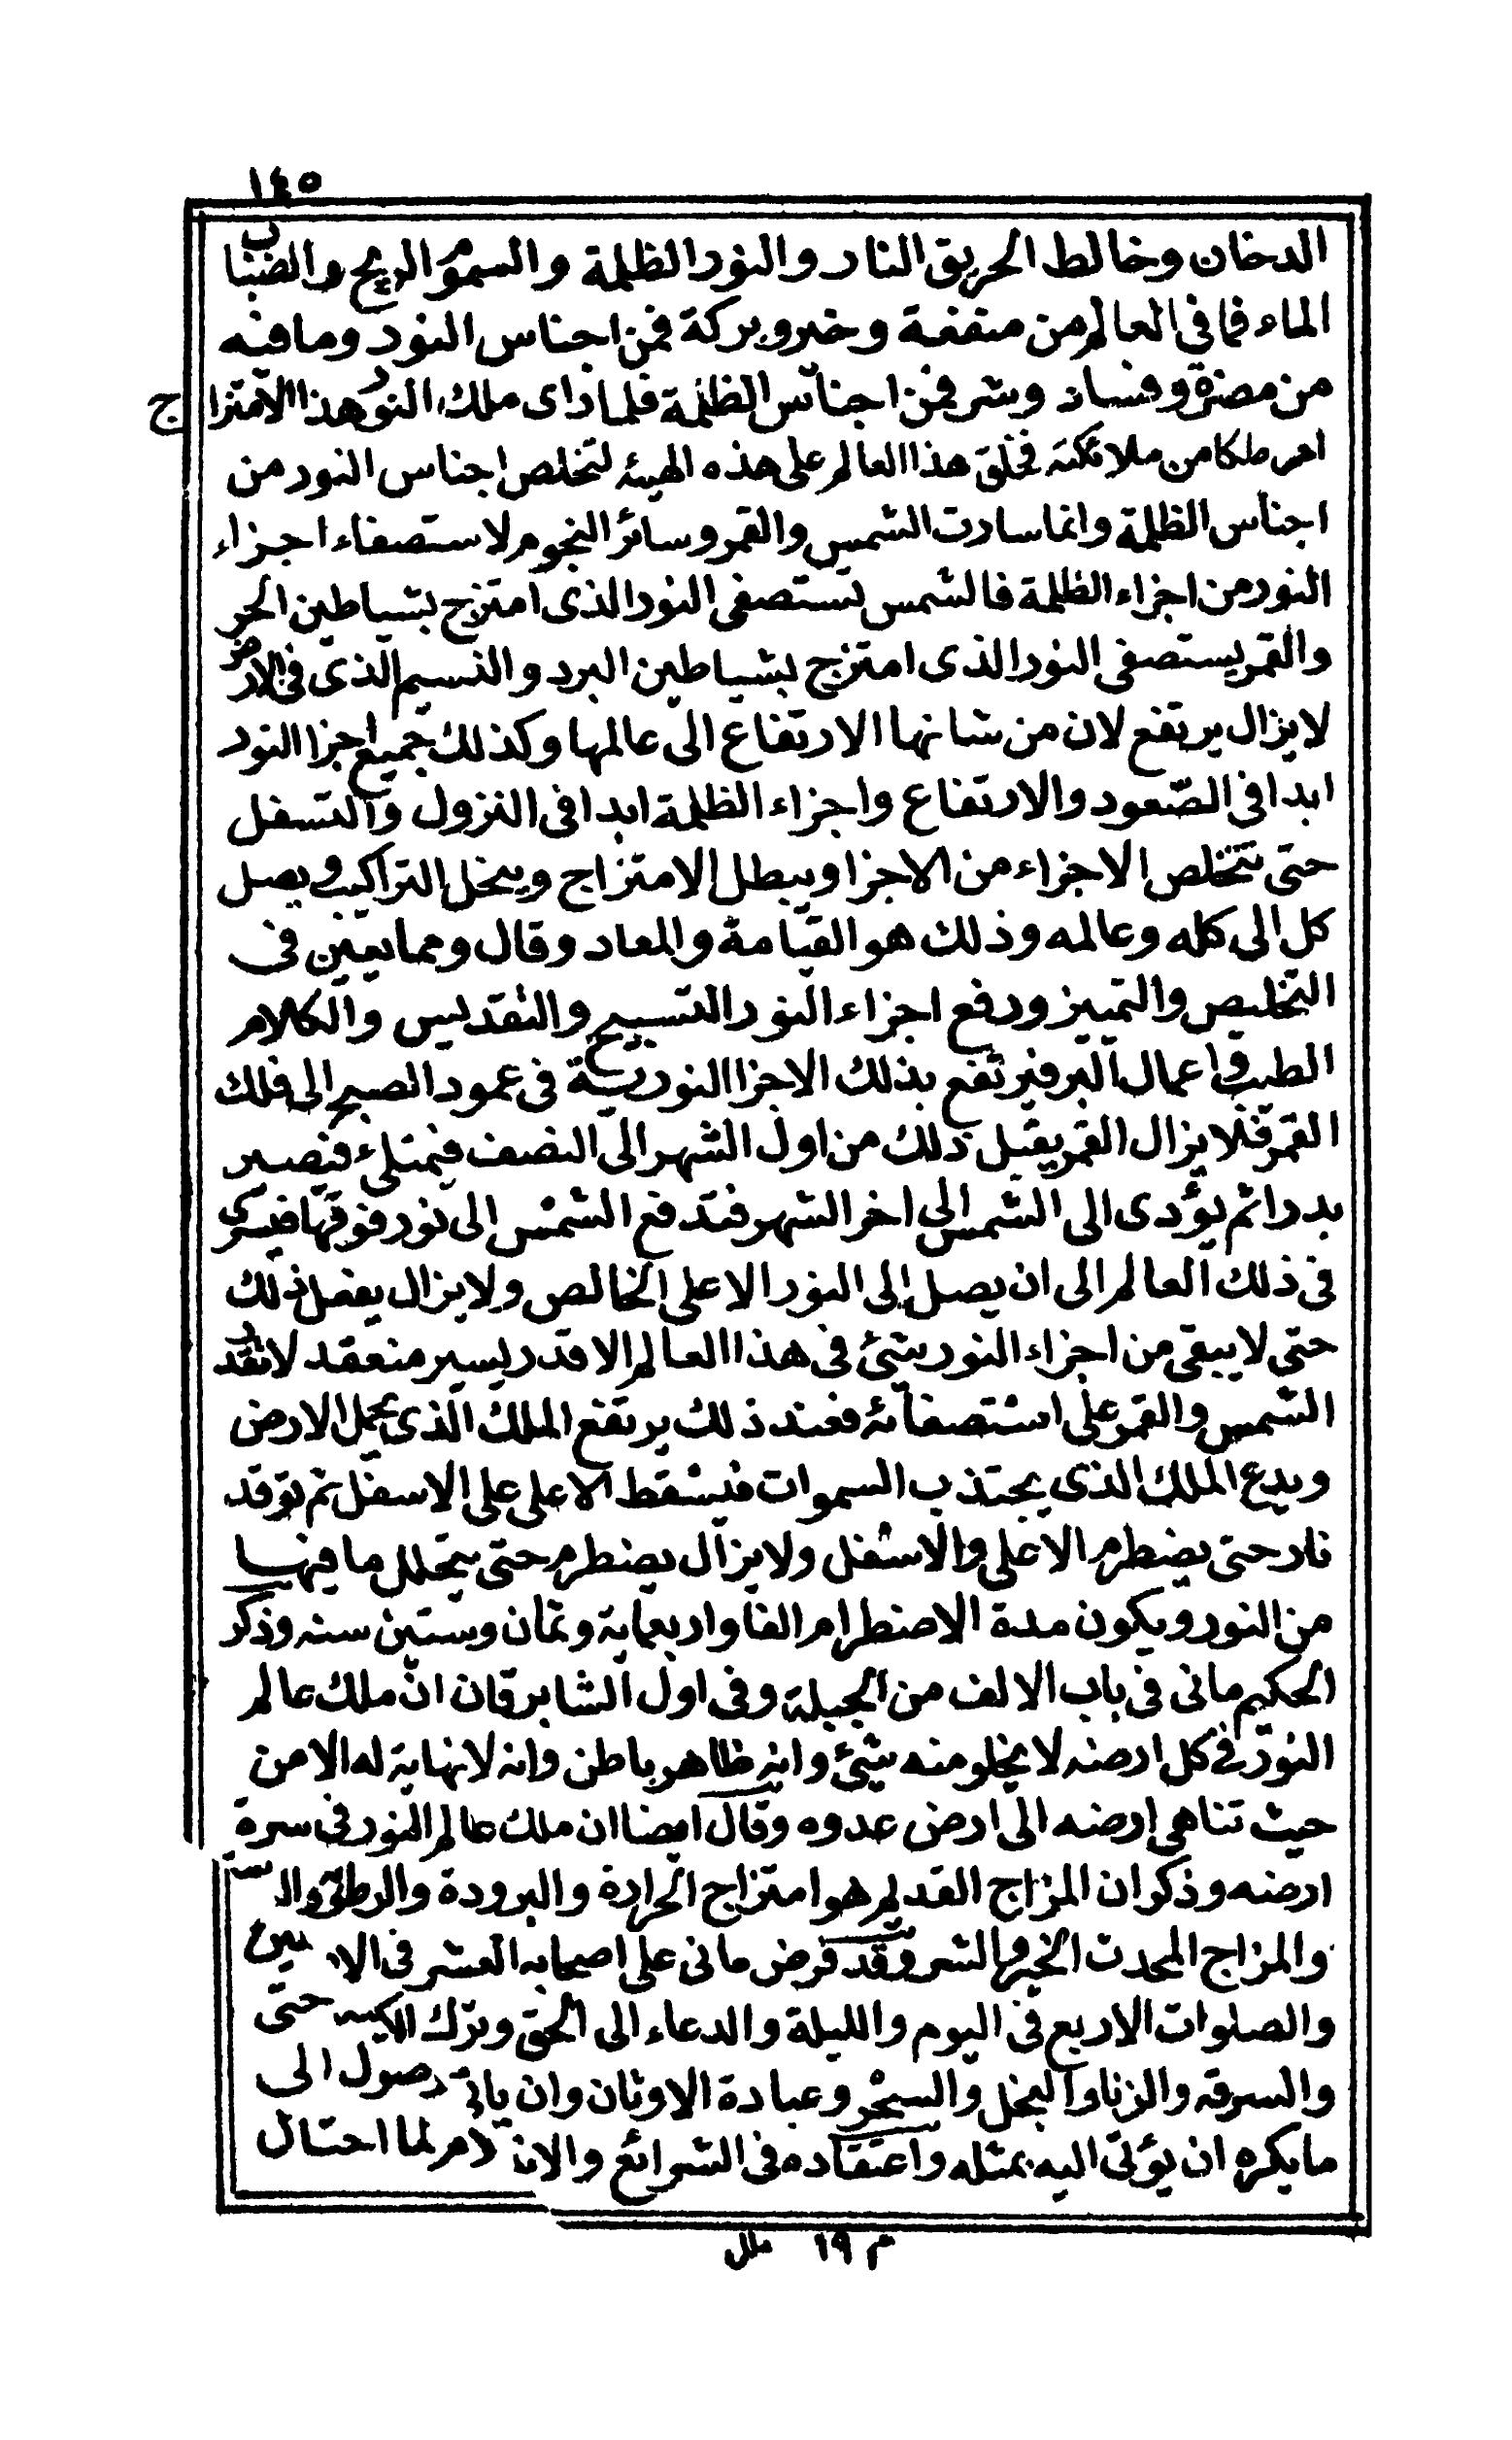 ١٤٥
الدخان وخالط الحريق النار والنور الظلمة والسموم الريح والضباب
الماء فما في العالم من منفعة وخير وبركة فمن اجناس النور وما فيه
من مضرة وفساد وشر فمن اجناس الظلمة فلما رأى ملك النور هذا الامتزاج
امر ملكا من ملائكته فخلق هذا العالم على هذه الهيئه لتخلص اجناس النور من
اجناس الظلمة وانما سارت الشمس والقمر وسائر النجوم لاستصفاء اجزاء
النور من اجزاء الظلمة فالشمس تستصفى النور الذى امتزج بشياطين الحر
والقمر يستصفى النور الذى امتزج بشياطين البرد والنسيم الذى فى الارض
لا يزال يرتفع لان من شانها الارتفاع الى عالمها وكذلك جميع اجزا النور
ابدا في الصعود والارتفاع واجزاء الظلمة ابدا فى النزول والتسفل
حتى تتخلص الاجزاء من الاجزا ويبطل الامتزاج وينحل التراكيب ويصل
كل الى كله وعالمه وذلك هو القيامة والمعاد وقال ومما يعين فى
التخليص والتمييز ورفع اجزاء النور التسبيح والتقديس والكلام
الطيب واعمال البر فيرتفع بذلك الاجزا النورية فى عمود الصبح الى فلك
القمر فلا يزال القمر يقبل ذلك من اول الشهر الى النصف فيمتلء فيصير
بدرا ثم يؤدى الى الشمس الى اخر الشهر فتدفع الشمس الى نور فوقها فيسرى
فى ذلك العالم الى ان يصل الى النور الاعلى الخالص ولا يزال يفعل ذلك
حتى لا يبقى من اجزاء النور شئ فى هذا العالم الا قدر يسير منعقد لا تقدر
الشمس والقمر على استصفائه فعند ذلك يرتفع الملك الذى يحمل الارض
ويدع الملك الذى يجتذب السموات فيسقط الاعلى على الاسفل ثم توقد
نار حتى يضطرم الاعلى والاسفل ولا يزال يضطرم حتى يتحلل ما فيها
من النور ويكون مدة الاضطرام الفا واربعماية وثمان وستين سنه وذكر
الحكيم مانى فى باب الالف من الجبلة وفى اول الشابرقان ان ملك عالم
النور فى كل ارضه لا يخلو منه شئ وانه ظاهر باطن وانه لا نهاية له الا من
حيث تناهى ارضه الى ارض عدوه وقال ايضا ان ملك عالم النور فى سرة
ارضه وذكر ان المزاج القديم هو امتزاج الحرارة والبرودة والرطوبة
والمزاج المحدث الخير والشر وقد فرض مانى على اصحابه العشر فى
والصلوات الاربع فى اليوم والليلة والدعاء الى الحق وترك حتى
والسرقه والزنا والبخل والسحر وعبادة الاوثان وان الى
ما يكره ان يؤتى اليه بمثله واعتقاده فى الشرائع لما احتال
م ١٩ ملل